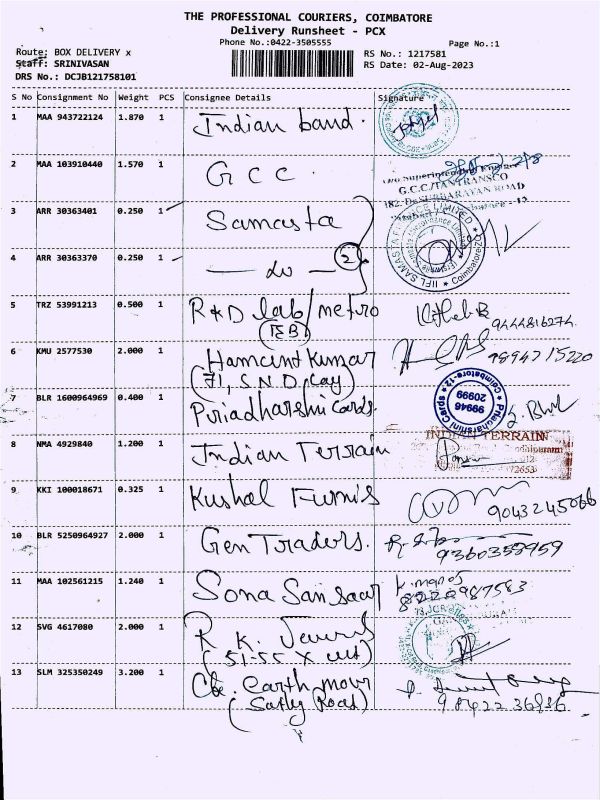 THE PROFESSIONAL COURIERS, COIMBATORE
Delivery Runsheet - PCX
Phone No.:0422-3505555
Page No.:1
Route: BOX DELIVERY x
Staff: SRINIVASAN
DRS No.: DCJB121758101
RS No.: 1217581
RS Date: 02-Aug-2023
S No Consignment No Weight PCS Consignee Details Signature
1 MAA 943722124 1.870 1 Indian band.
2 MAA 103910440 1.570 1 G C C.
2/8
G.C.C./TANTRANSCO
3 ARR 30363401 0.250 1 Samasta
IIFL SAMASTA FINANCE LIMITED
Coimbatore
4 ARR 30363370 0.250 1 — do — 2
5 TRZ 53991213 0.500 1 R&D lab/metro
9444816274
6 KMU 2577530 2.000 1 Hamcint Kumar
(71, S.N.D. Lay)
7 BLR 1600964969 0.400 1 Piriadharshni Cards.
99946
20999
Coimbatore-12
8 NMA 4929840 1.200 1 Indian Terrain
INDIAN TERRAIN
9 KKI 100018671 0.325 1 Kushal Furnis
10 BLR 5250964927 2.000 1 Gen Traders.
9360358959
11 MAA 102561215 1.240 1 Sona Sansaar
12 SVG 4617080 2.000 1 R. K.
(51-55 X cut)
13 SLM 325350249 3.200 1 Cbe. earth mour